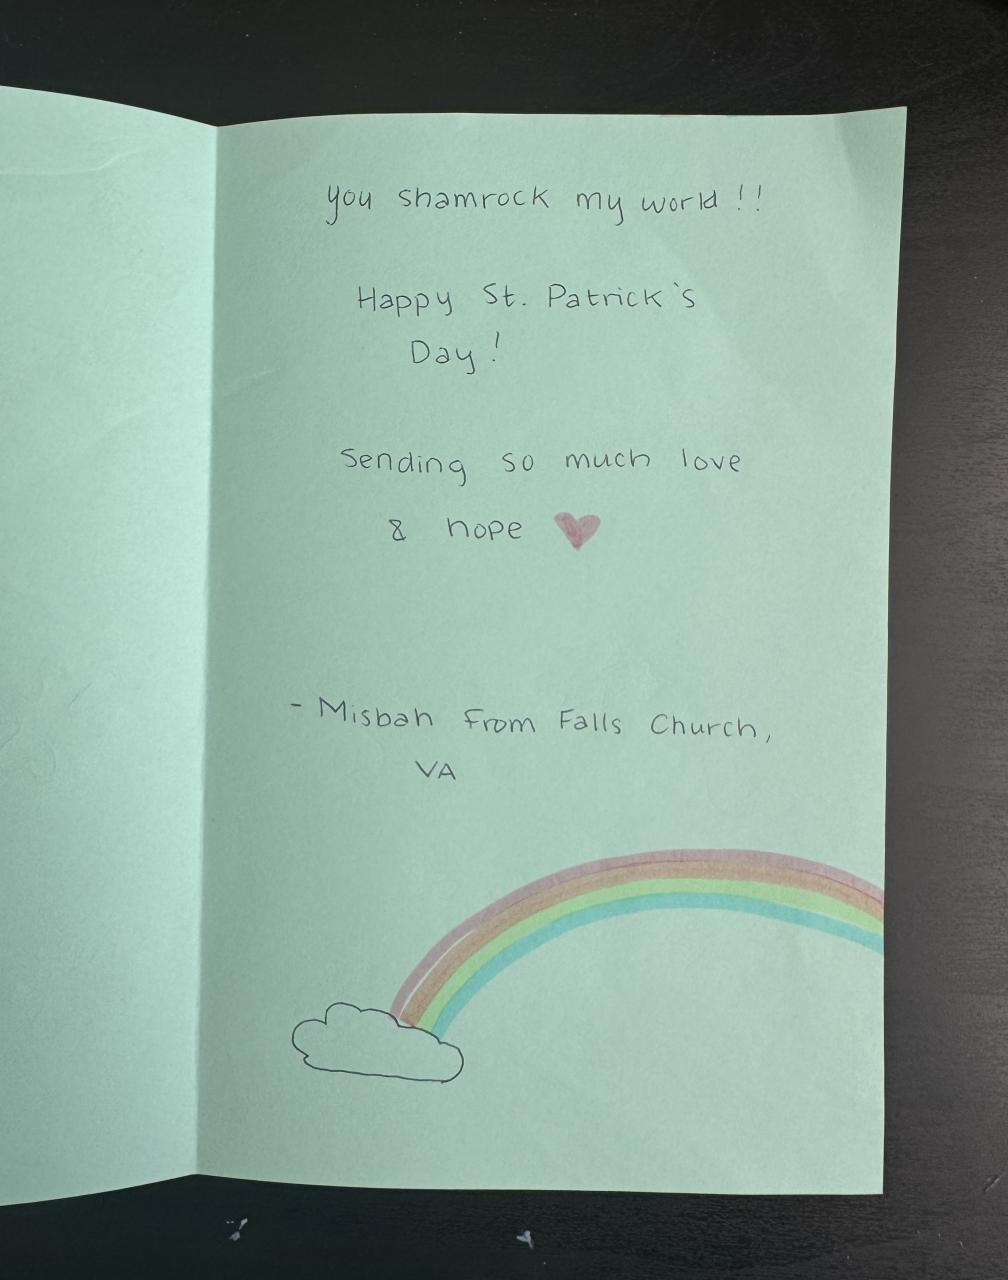 you shamrock my world !!
Happy St. Patrick's
Day!
Sending so much love
& hope
- Misbah from Falls Church,
VA